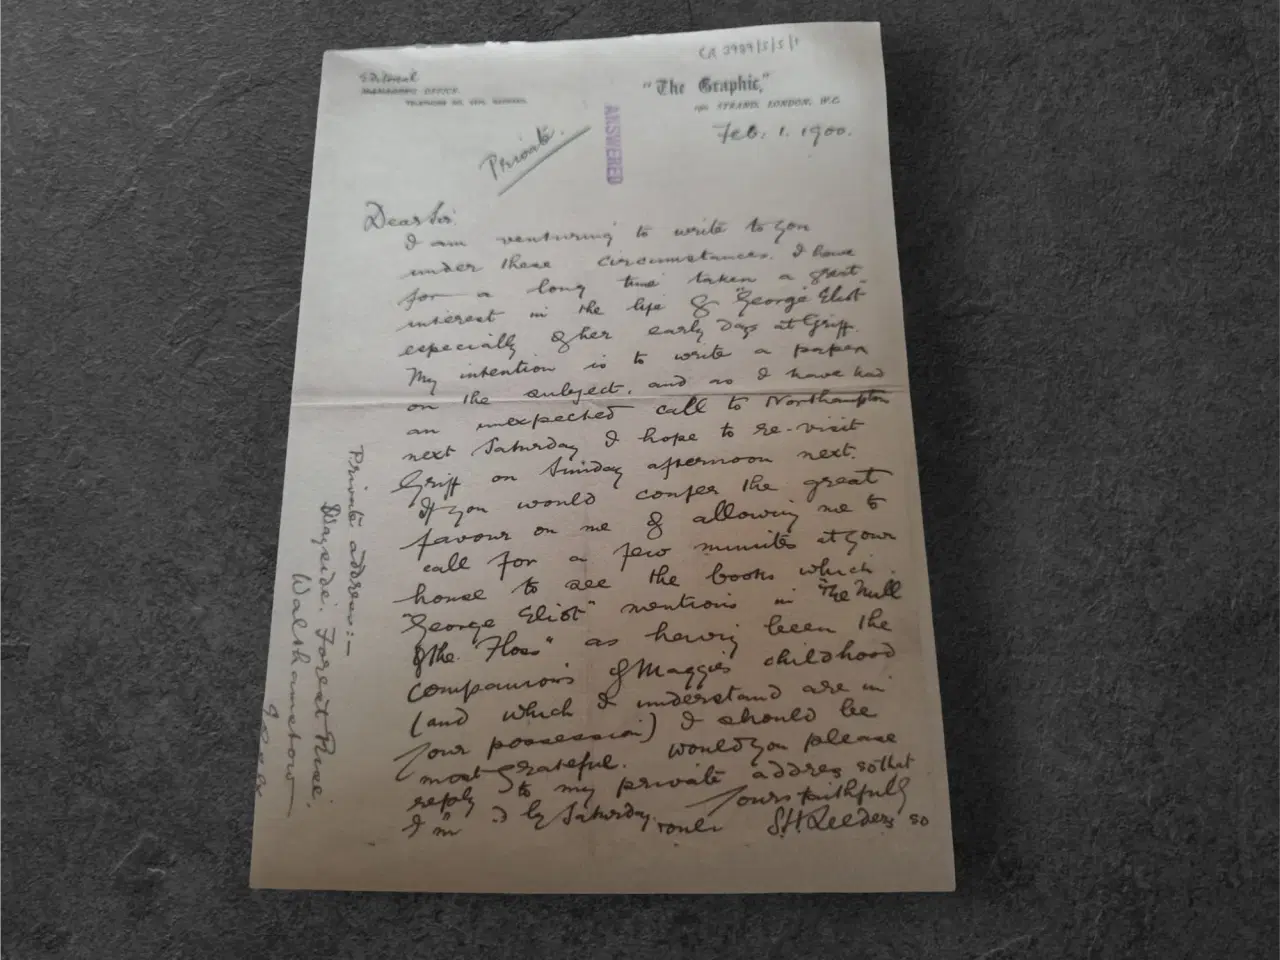 CR 3989/5/5/1
Editorial
MANAGING OFFICE.
"The Graphic,"
190, STRAND, LONDON, W.C.
Feb. 1. 1900.
Private.
ANSWERED
Dear Sir
I am venturing to write to you
under these circumstances. I have
for a long time taken a great
interest in the life of "George Eliot"
especially of her early days at Griff.
My intention is to write a paper
on the subject, and as I have had
an unexpected call to Northampton
next Saturday I hope to re-visit
Griff on Sunday afternoon next.
If you would confer the great
favour on me of allowing me to
call for a few minutes at your
house to see the books which
"George Eliot" mentions in "The Mill
of the Floss" as having been the
companions of Maggie's childhood
(and which I understand are in
your possession) I should be
most grateful. Would you please
reply to my private address so that
I by Saturday.
Yours faithfully
S.H. Leeder
so
Private address:—
Wayside, Forest Rise,
Walthamstow